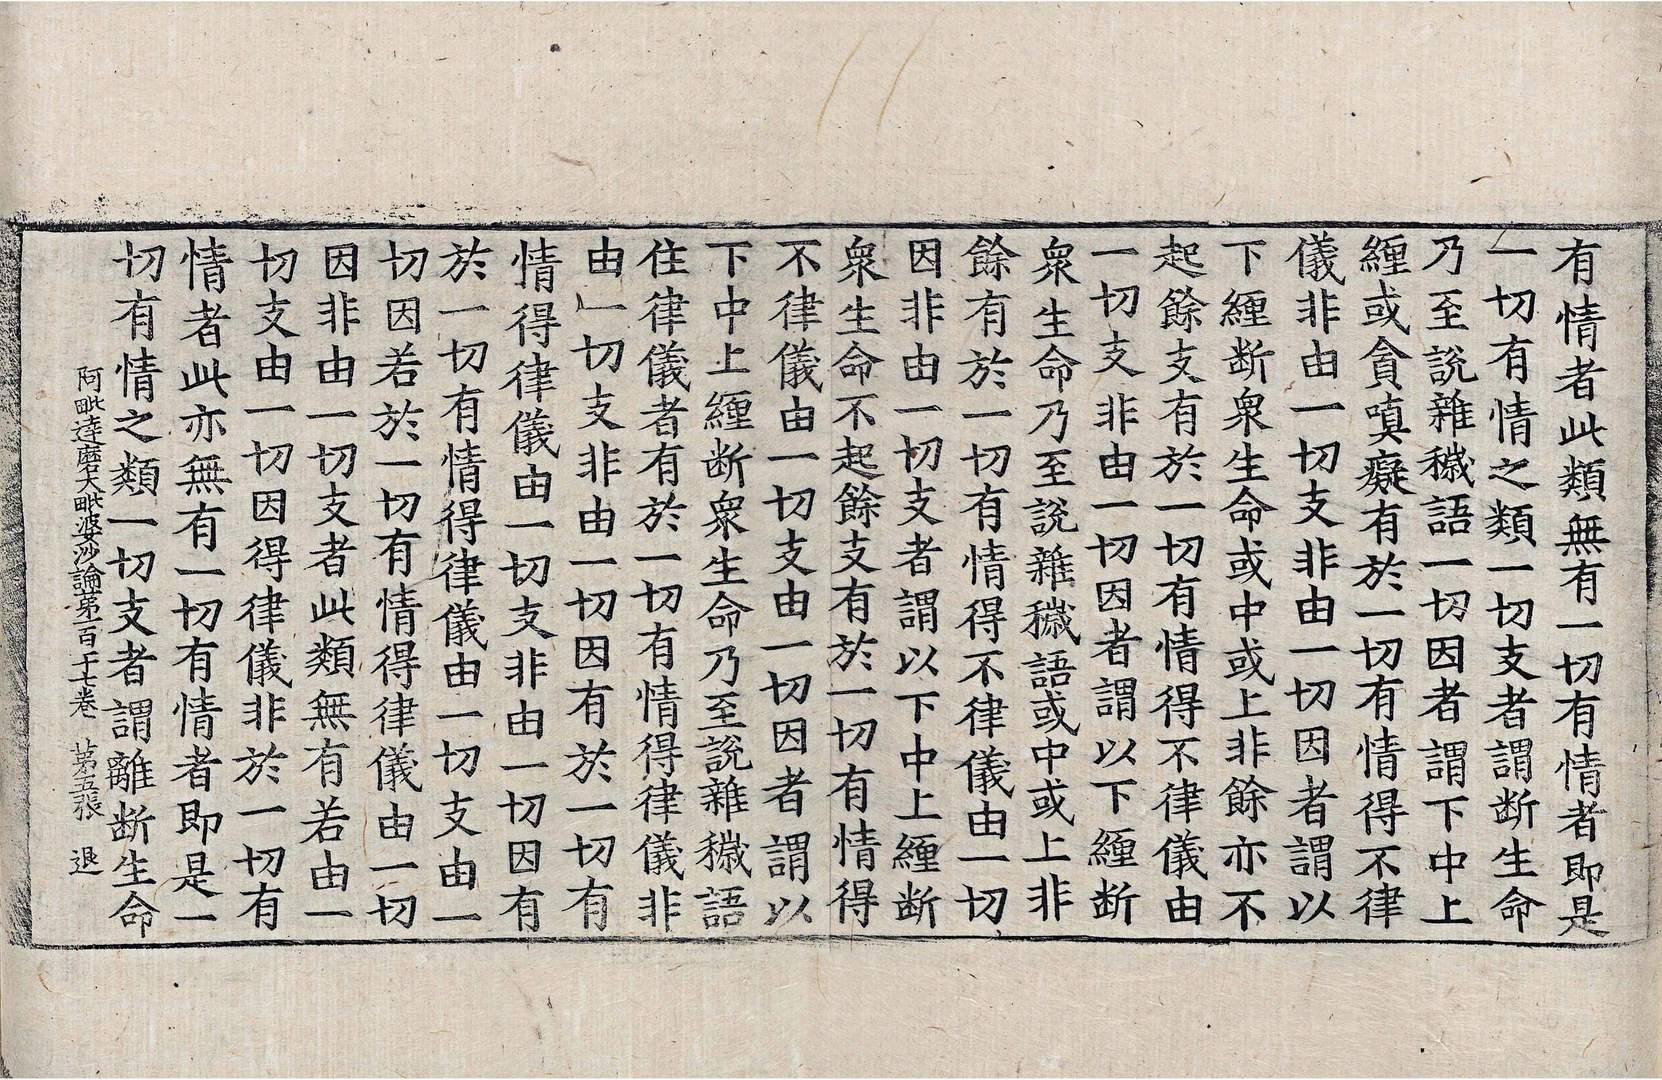 有情者此類無有一切有情者即是
一切有情之類一切支者謂斷生命
乃至說雜穢語一切因者謂下中上
纏或貪嗔癡有於一切有情得不律
儀非由一切支非由一切因者謂以
下纏斷衆生命或中或上非餘亦不
起餘支有於一切有情得不律儀由
一切支非由一切因者謂以下纏斷
衆生命乃至說雜穢語或中或上非
餘有於一切有情得不律儀由一切
因非由一切支者謂以下中上纏斷
衆生命不起餘支有於一切有情得
不律儀由一切支由一切因者謂以
下中上纏斷衆生命乃至說雜穢語
住律儀者有於一切有情得律儀非
由一切支非由一切因有於一切有
情得律儀由一切支非由一切因有
於一切有情得律儀由一切支由一
切因若於一切有情得律儀由一切
因非由一切支者此類無有若由一
切支由一切因得律儀非於一切有
情者此亦無有一切有情者即是一
切有情之類一切支者謂離斷生命
阿毗達磨大毗婆沙論第一百十七卷 第五張 退